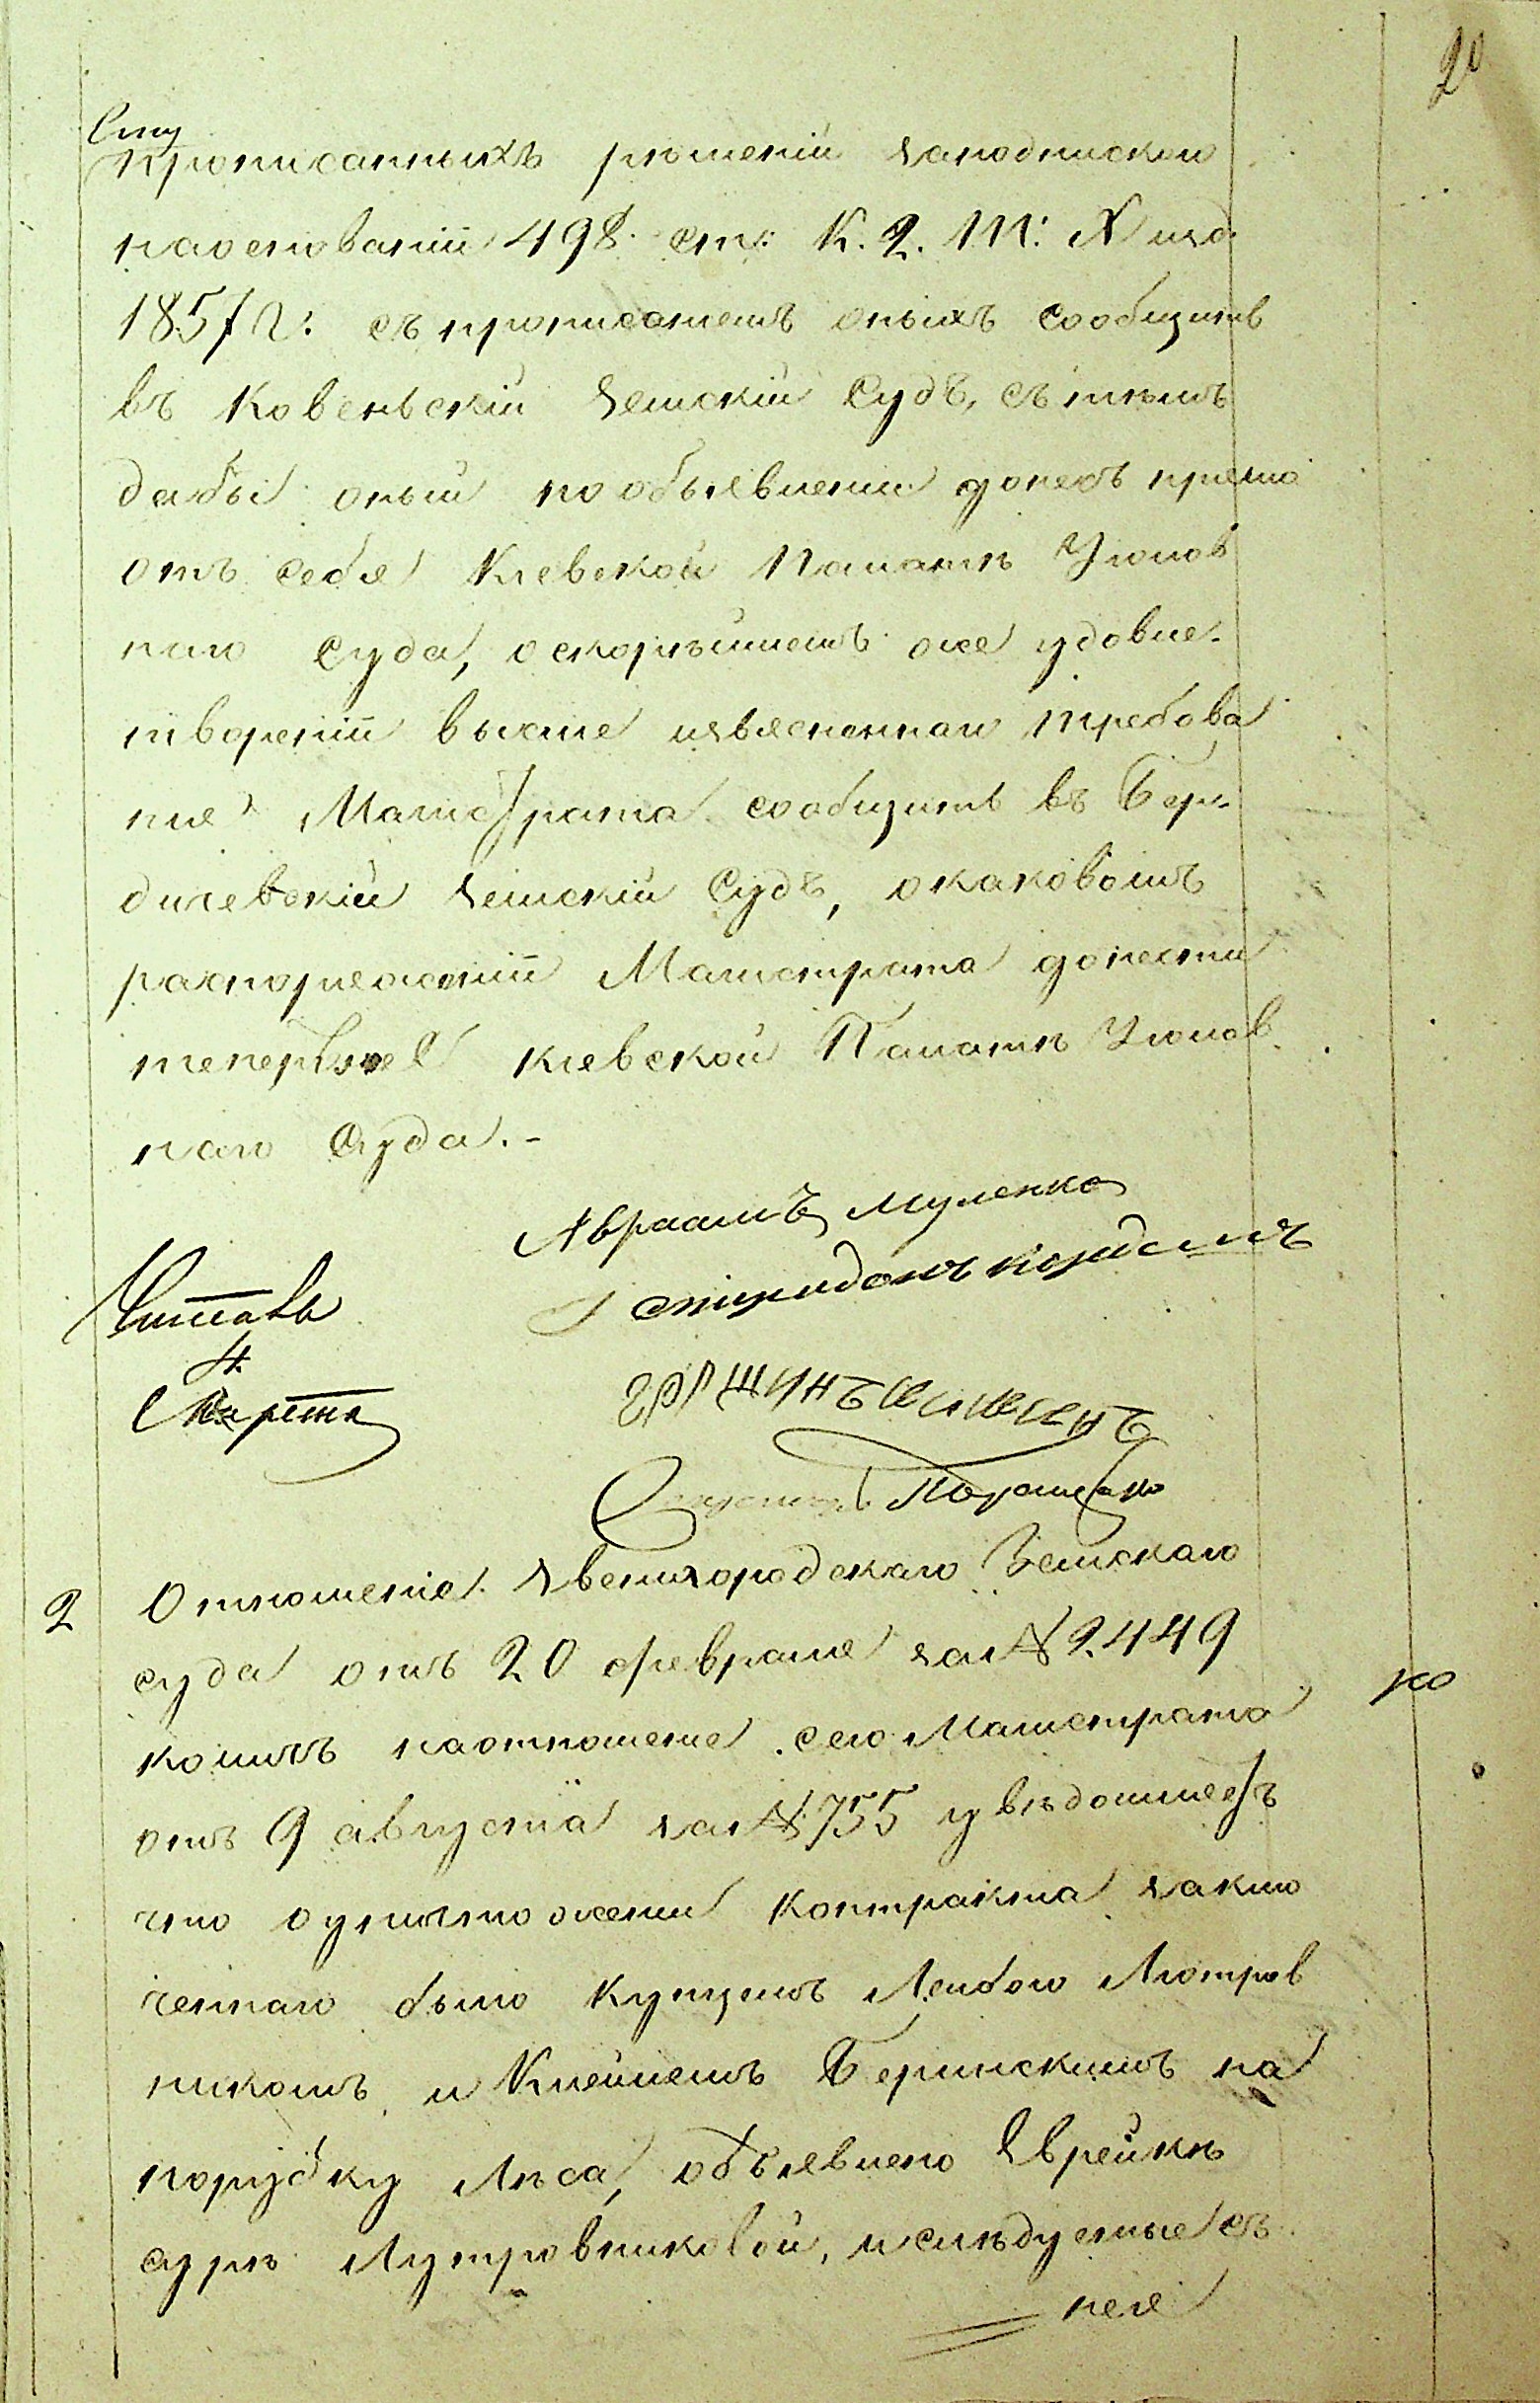 20
Ему
прописанныхъ рѣшеній заподпискою
наоснованіи 498 ст: К. 2. Т: X изд
1857 г: съ прописаніемъ оныхъ сообщить
въ Ковеньскій Земскій Судъ, съ тѣмъ
дабы оный по объявленіи донесъ прямо
отъ себя Кіевской Палатѣ Уголов
наго Суда, оскорѣйшемъ же удовле-
твореніи выше изъясненнаго требова
нія Магистрата сообщить въ Бер-
дичевскій Земскій Судъ, окаковомъ
распоряженіи Магистрата донести
теперь же Кіевской Палатѣ Уголов
наго Суда.-
Авраамъ Муленко
Спиридонъ
Читалъ
Секретарь
2 Отношеніе Звенигородскаго Земскаго
суда отъ 20 февраля за № 2449
коимъ наотношеніе сего Магистрата
отъ 9 августа за № 755 увѣдомляетъ
что оуничтоженіи контракта заклю
ченнаго было купцемъ Лейбою Лютров
никомъ и Клейнемъ Беринскимъ на
порубку лѣса, объявлено Еврейкѣ
Сурѣ Лутровниковой, и слѣдуемые съ
нея